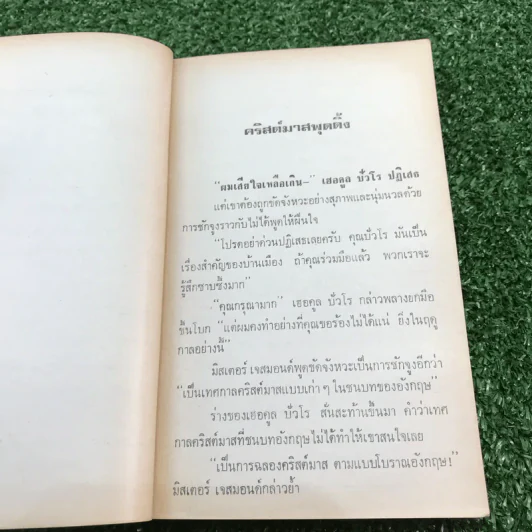 คริสต์มาสพุดดิ้ง
"ผมเสียใจเหลือเกิน–" เฮอคูล ปัวโร ปฏิเสธ
แต่เขาต้องถูกขัดจังหวะอย่างสุภาพและนุ่มนวลด้วย
การชักจูงราวกับไม่ได้พูดให้ฝืนใจ
"โปรดอย่าด่วนปฏิเสธเลยครับ คุณปัวโร มันเป็น
เรื่องสำคัญของบ้านเมือง ถ้าคุณร่วมมือแล้ว พวกเราจะ
รู้สึกซาบซึ้งมาก"
"คุณกรุณามาก" เฮอคูล ปัวโร กล่าวพลางยกมือ
ขึ้นโบก "แต่ผมคงทำอย่างที่คุณขอร้องไม่ได้แน่ ยิ่งในฤดู
กาลอย่างนี้"
มิสเตอร์ เจสมอนด์พูดขัดจังหวะเป็นการชักจูงอีกว่า
"เป็นเทศกาลคริสต์มาสแบบเก่า ๆ ในชนบทของอังกฤษ"
ร่างของเฮอคูล ปัวโร สั่นสะท้านขึ้นมา คำว่าเทศ
กาลคริสต์มาสที่ชนบทอังกฤษไม่ได้ทำให้เขาสนใจเลย
"เป็นการฉลองคริสต์มาส ตามแบบโบราณอังกฤษ!"
มิสเตอร์ เจสมอนด์กล่าวย้ำ